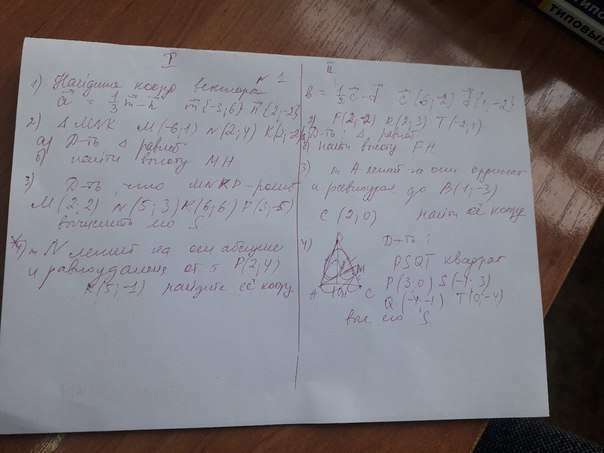 I
1) Найдите коор вектора
a = 1/3 m - n m{-3,6} n{2,-2}
2) Δ MNK M(-6,1) N(2;4) K(2,-2)
а) Д-ть Δ равноб
б) найти высоту MH
3) Д-ть, что MNKP-ромб
M(2;2) N(5;3) K(6;6) P(3;-5)
вычислить его S
N лежит на оси абсцисс
и равноудалена от т P(7,4)
K(5;-1) найдите её коор
II
1
B = 1/3 c - d c{6;-2} d{1,-2}
F(2;-2) K(2;3) T(-2;1)
Д-ть: Δ равноб
найти высоту FH
3) т A лежит на оси ординат
и равноудал до B(1;-3)
C (2;0) найти её коор
4) Д-ть:
PSQT квадрат
P(3;0) S(-1;3)
Q(-4;-1) T(0;-4)
выч его S
A
C
типовы